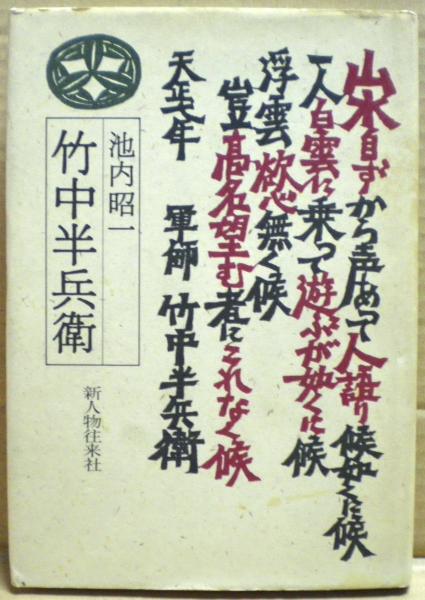 山水自ずから声あって人語り候如くに候
一人白雲に乗って遊ぶが如くに候
浮雲 欲心無く候
豈壱名望む者にこれなく候
天正年 軍師 竹中半兵衛
池内昭一
竹中半兵衛
新人物往来社